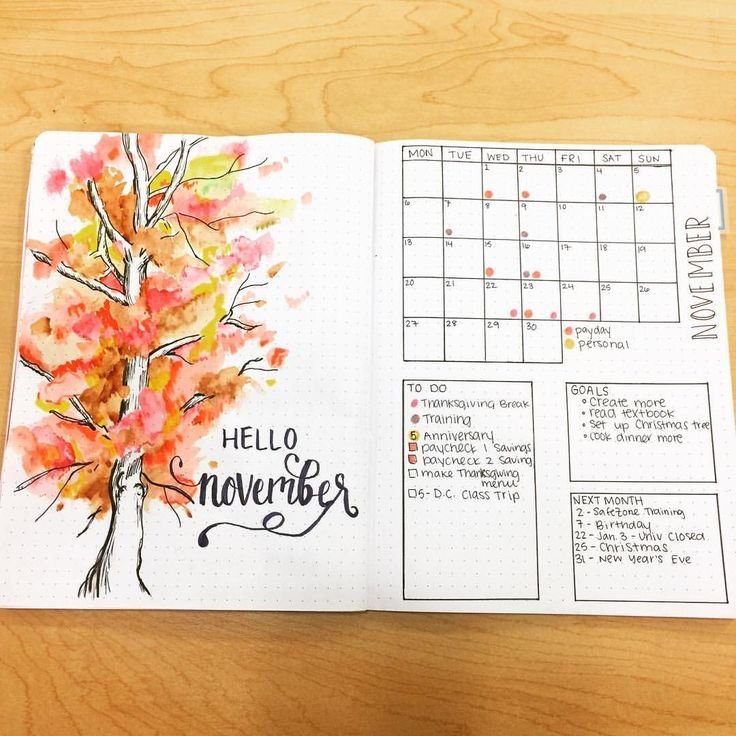 HELLO
november
MON TUE WED THU FRI SAT SUN
1 2 3 4 5
6 7 8 9 10 11 12
13 14 15 16 17 18 19
20 21 22 23 24 25 26
27 28 29 30
payday
personal
NOVEMBER
TO DO
Thanksgiving Break
Training
5 Anniversary
paycheck 1 Savings
paycheck 2 Saving
make Thanksgiving
menu
5- D.C. Class Trip
GOALS
Create more
read textbook
Set up Christmas tree
Cook dinner more
NEXT MONTH
2 - Safezone Training
7 - Birthday
22 - Jan. 3 - Univ Closed.
25 - Christmas
31 - New Year's Eve